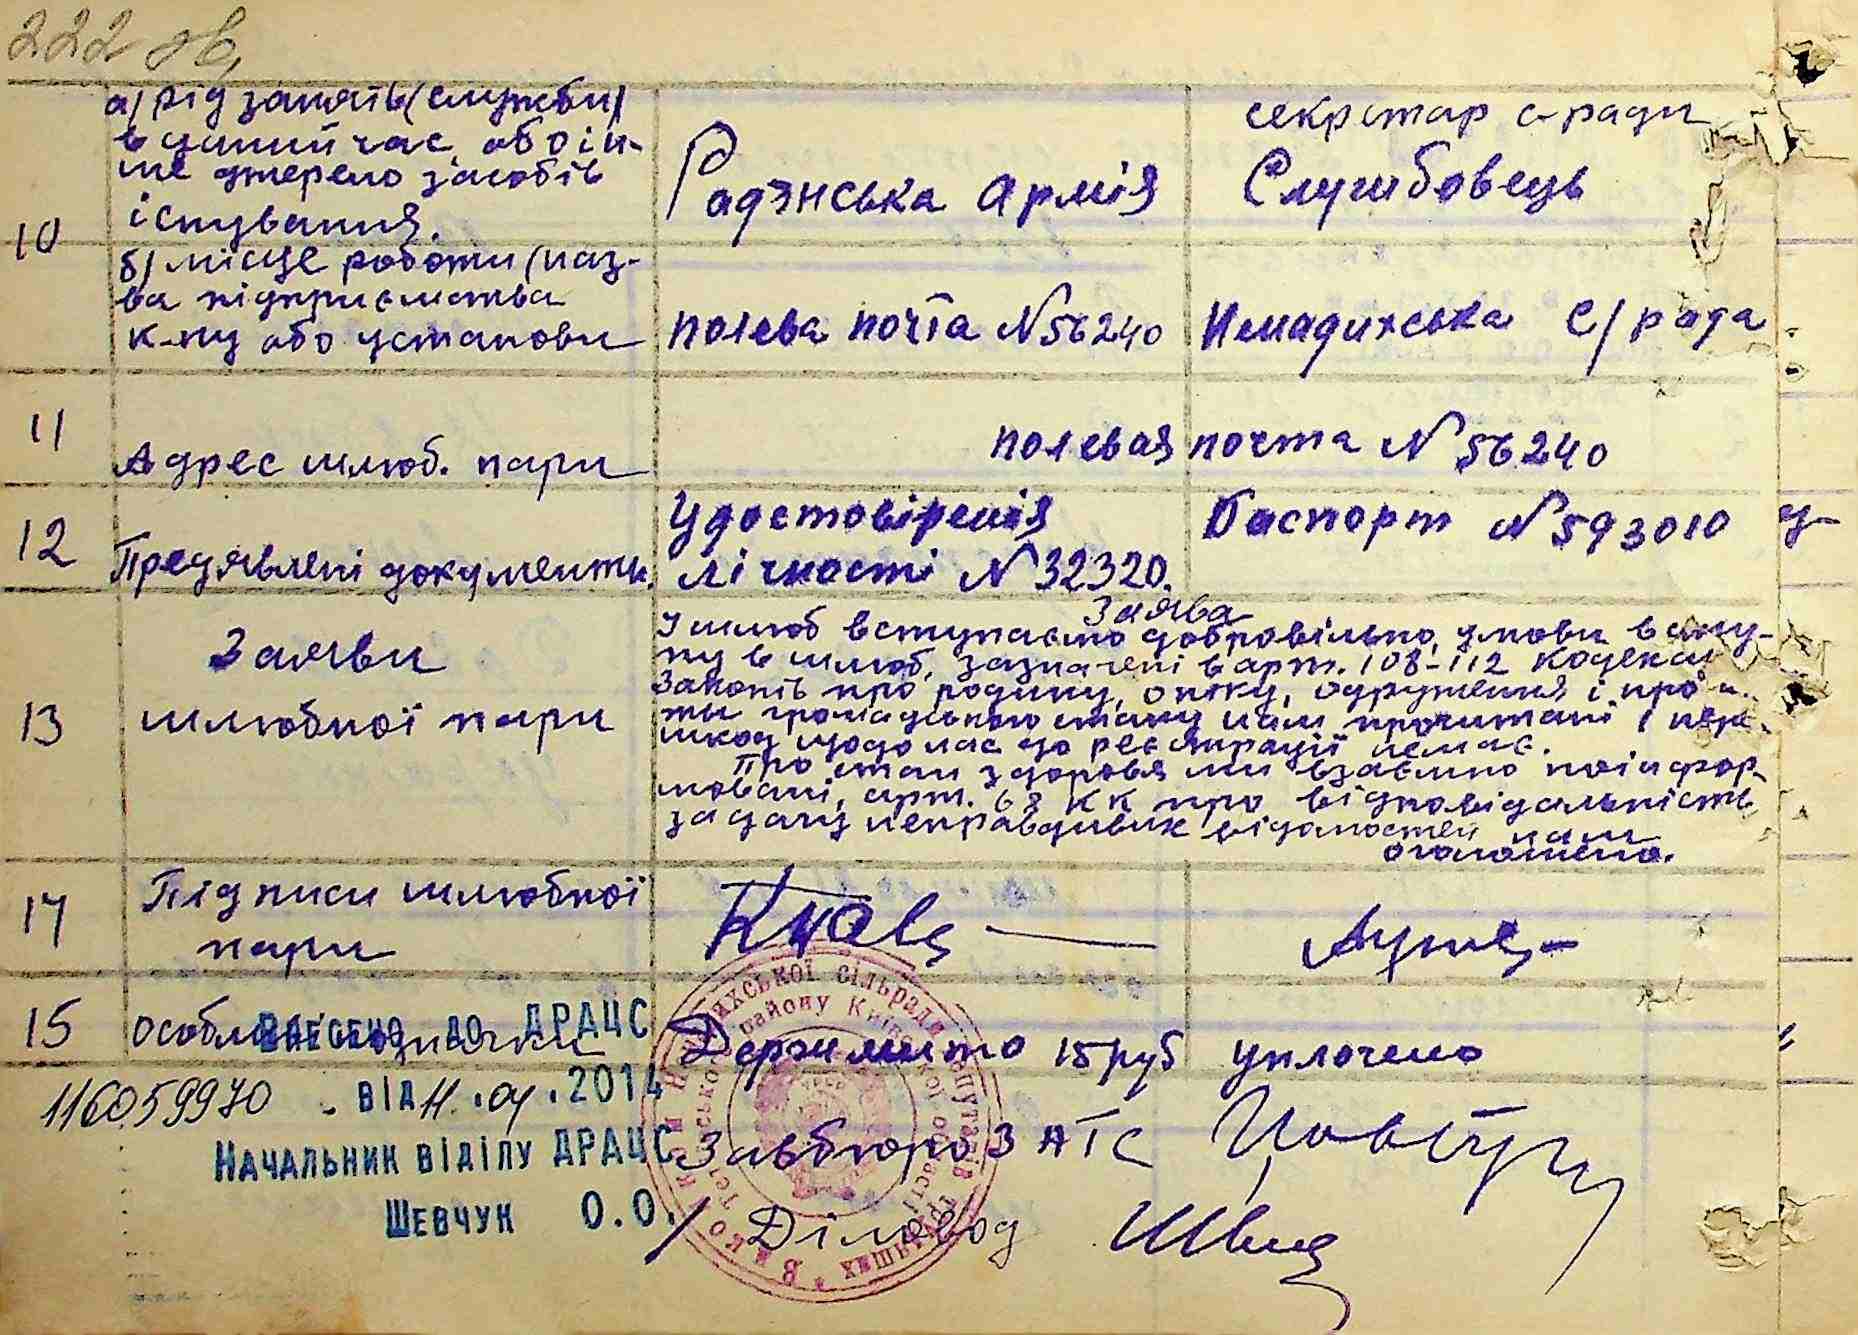 222 зв.
10
а/ рід занять (служби)
в даний час, або ін-
ше джерело засобів
існування.
Радянська Армія
секретар с-ради
Службовець
б) місце роботи (наз-
ва підприємства
к-пу або установи
полева почта N 56240
с/рада
11
Адрес шлюб. пари
полевая почта N 56240
12
Предявлені документи.
Удостовіренія
лічности N 32320.
Паспорт N 593010
13
Заяви
шлюбної пари
Заява
У шлюб вступаємо добровільно, умови всту-
пу в шлюб, зазначені в арт. 108-112 кодекси
Законів про родину, опіку, одруження і про а-
кты громадського стану нам прочитані і пере-
шкод щодо нас до реєстрації немає.
Про стан здоровя ми взаємно поінфор-
мовані, арт. 68 КК про відповідальність
за дачу неправдивих відомостей нам
оголошено.
14
Підписи шлюбної
пари
15
Особливі
ВНЕСЕНО ДО ДРАЦС
Держмито 15 руб уплочено
116059970 від 11.04.2014
НАЧАЛЬНИК ВІДІЛУ ДРАЦС
Завбюро ЗАГС
ШЕВЧУК О.О.
Діловод
сільрада депутатів трудящих
району Київської області